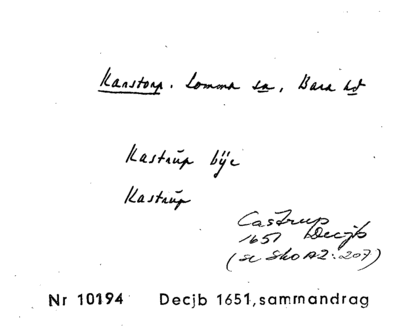 Karstorp. Lomma sn, Bara hd
Kastrŭp bÿe
Kastrŭp
Castrup
1651 Decjb
(se Sko A2:207)
Nr 10194 Decjb 1651, sammandrag